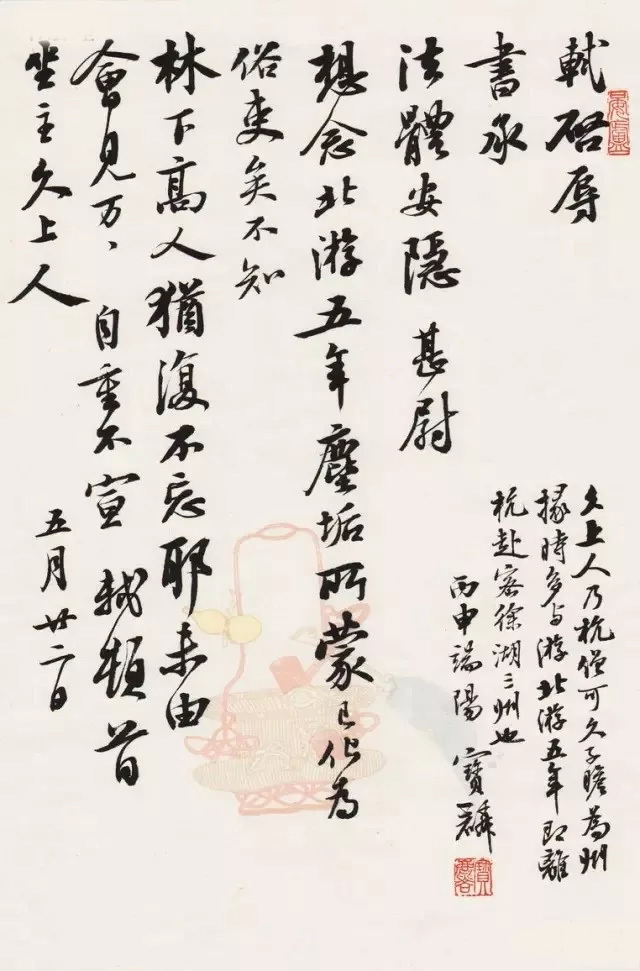 軾啓辱
書承
法體安隱甚尉
想念北游五年塵垢所蒙已化為
俗吏矣不知
林下高人猶復不忘耶未由
會見万、自重不宣軾頓首
坐主久上人
五月廿二日
久上人乃杭僧可久子瞻為州
掾時多与游北游五年即離
杭赴密徐湖三州也
丙申端陽 寶麟